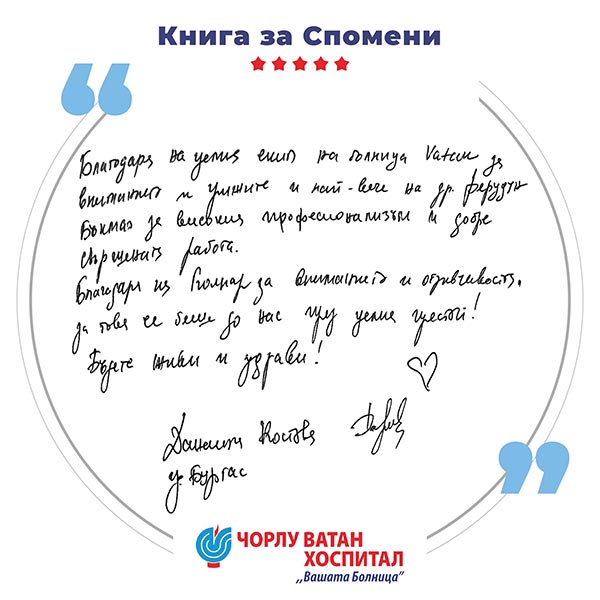 Книга за Спомени
Благодаря на целия екип на болница Vatan за
вниманието и грижите и най-вече на др. Ферудун
за високия професионализъм и добре
свършената работа.
Благодаря на за вниманието и отзивчивостта,
за това че беше до нас през целия престой!
Бъдете живи и здрави!
Костова
гр. Бургас
ЧОРЛУ ВАТАН
ХОСПИТАЛ
,,Вашата Болница"